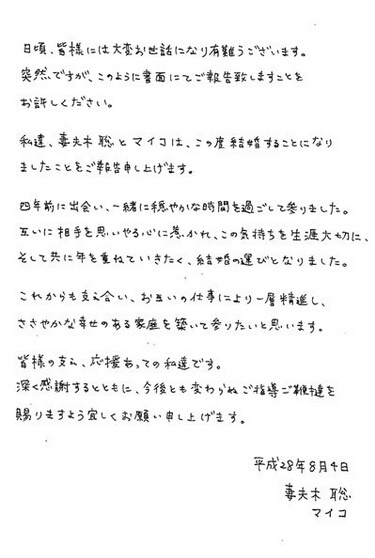 日頃、皆様には大変お世話になり有難うございます。
突然ですが、このように書面にてご報告致しますことを
お許しください。
私達、妻夫木 聡とマイコは、この度結婚することになり
ましたことをご報告申し上げます。
四年前に出会い、一緒に穏やかな時間を過ごして参りました。
互いに相手を思いやる心に惹かれ、この気持ちを生涯大切に、
そして共に年を重ねていきたく、結婚の運びとなりました。
これからも支え合い、お互いの仕事により一層精進し、
ささやかな幸せのある家庭を築いて参りたいと思います。
皆様の支え、応援あっての私達です。
深く感謝するとともに、今後とも変わらぬご指導ご鞭撻を
賜りますよう宜しくお願い申し上げます。
平成28年8月4日
妻夫木 聡
マイコ